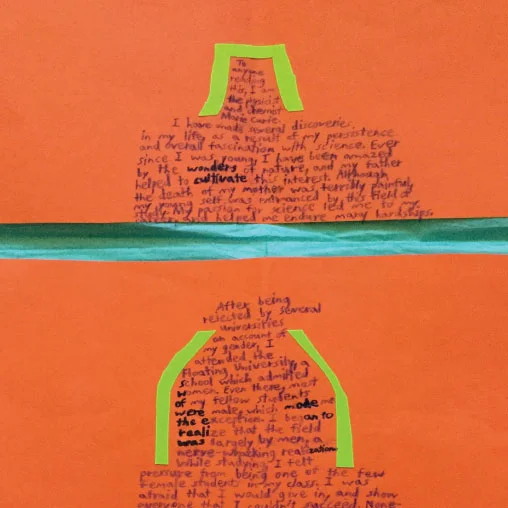 To
anyone
reading
this, I am
the physicist
and chemist
Marie Curie.
I have made several discoveries
in my life as a result of my persistence
and overall fascination with science. Ever
since I was young, I have been amazed
by the wonders of nature, and my father
helped to cultivate this interest. Although
the death of my mother was terribly painful,
my young self was entranced by this field of
My passion for science led me to my
helped me endure many hardships.
After being
rejected by several
universities
on account of
my gender, I
attended the
Floating University, a
school which admitted
women. Even there, most
of my fellow students
were male, which made me
the exception. I began to
realize that the field
was largely by men, a
nerve-whacking realization.
While studying, I felt
pressure from being one of the few
female students in my class. I was
afraid that I would give in, and show
everyone that I couldn't succeed. None-